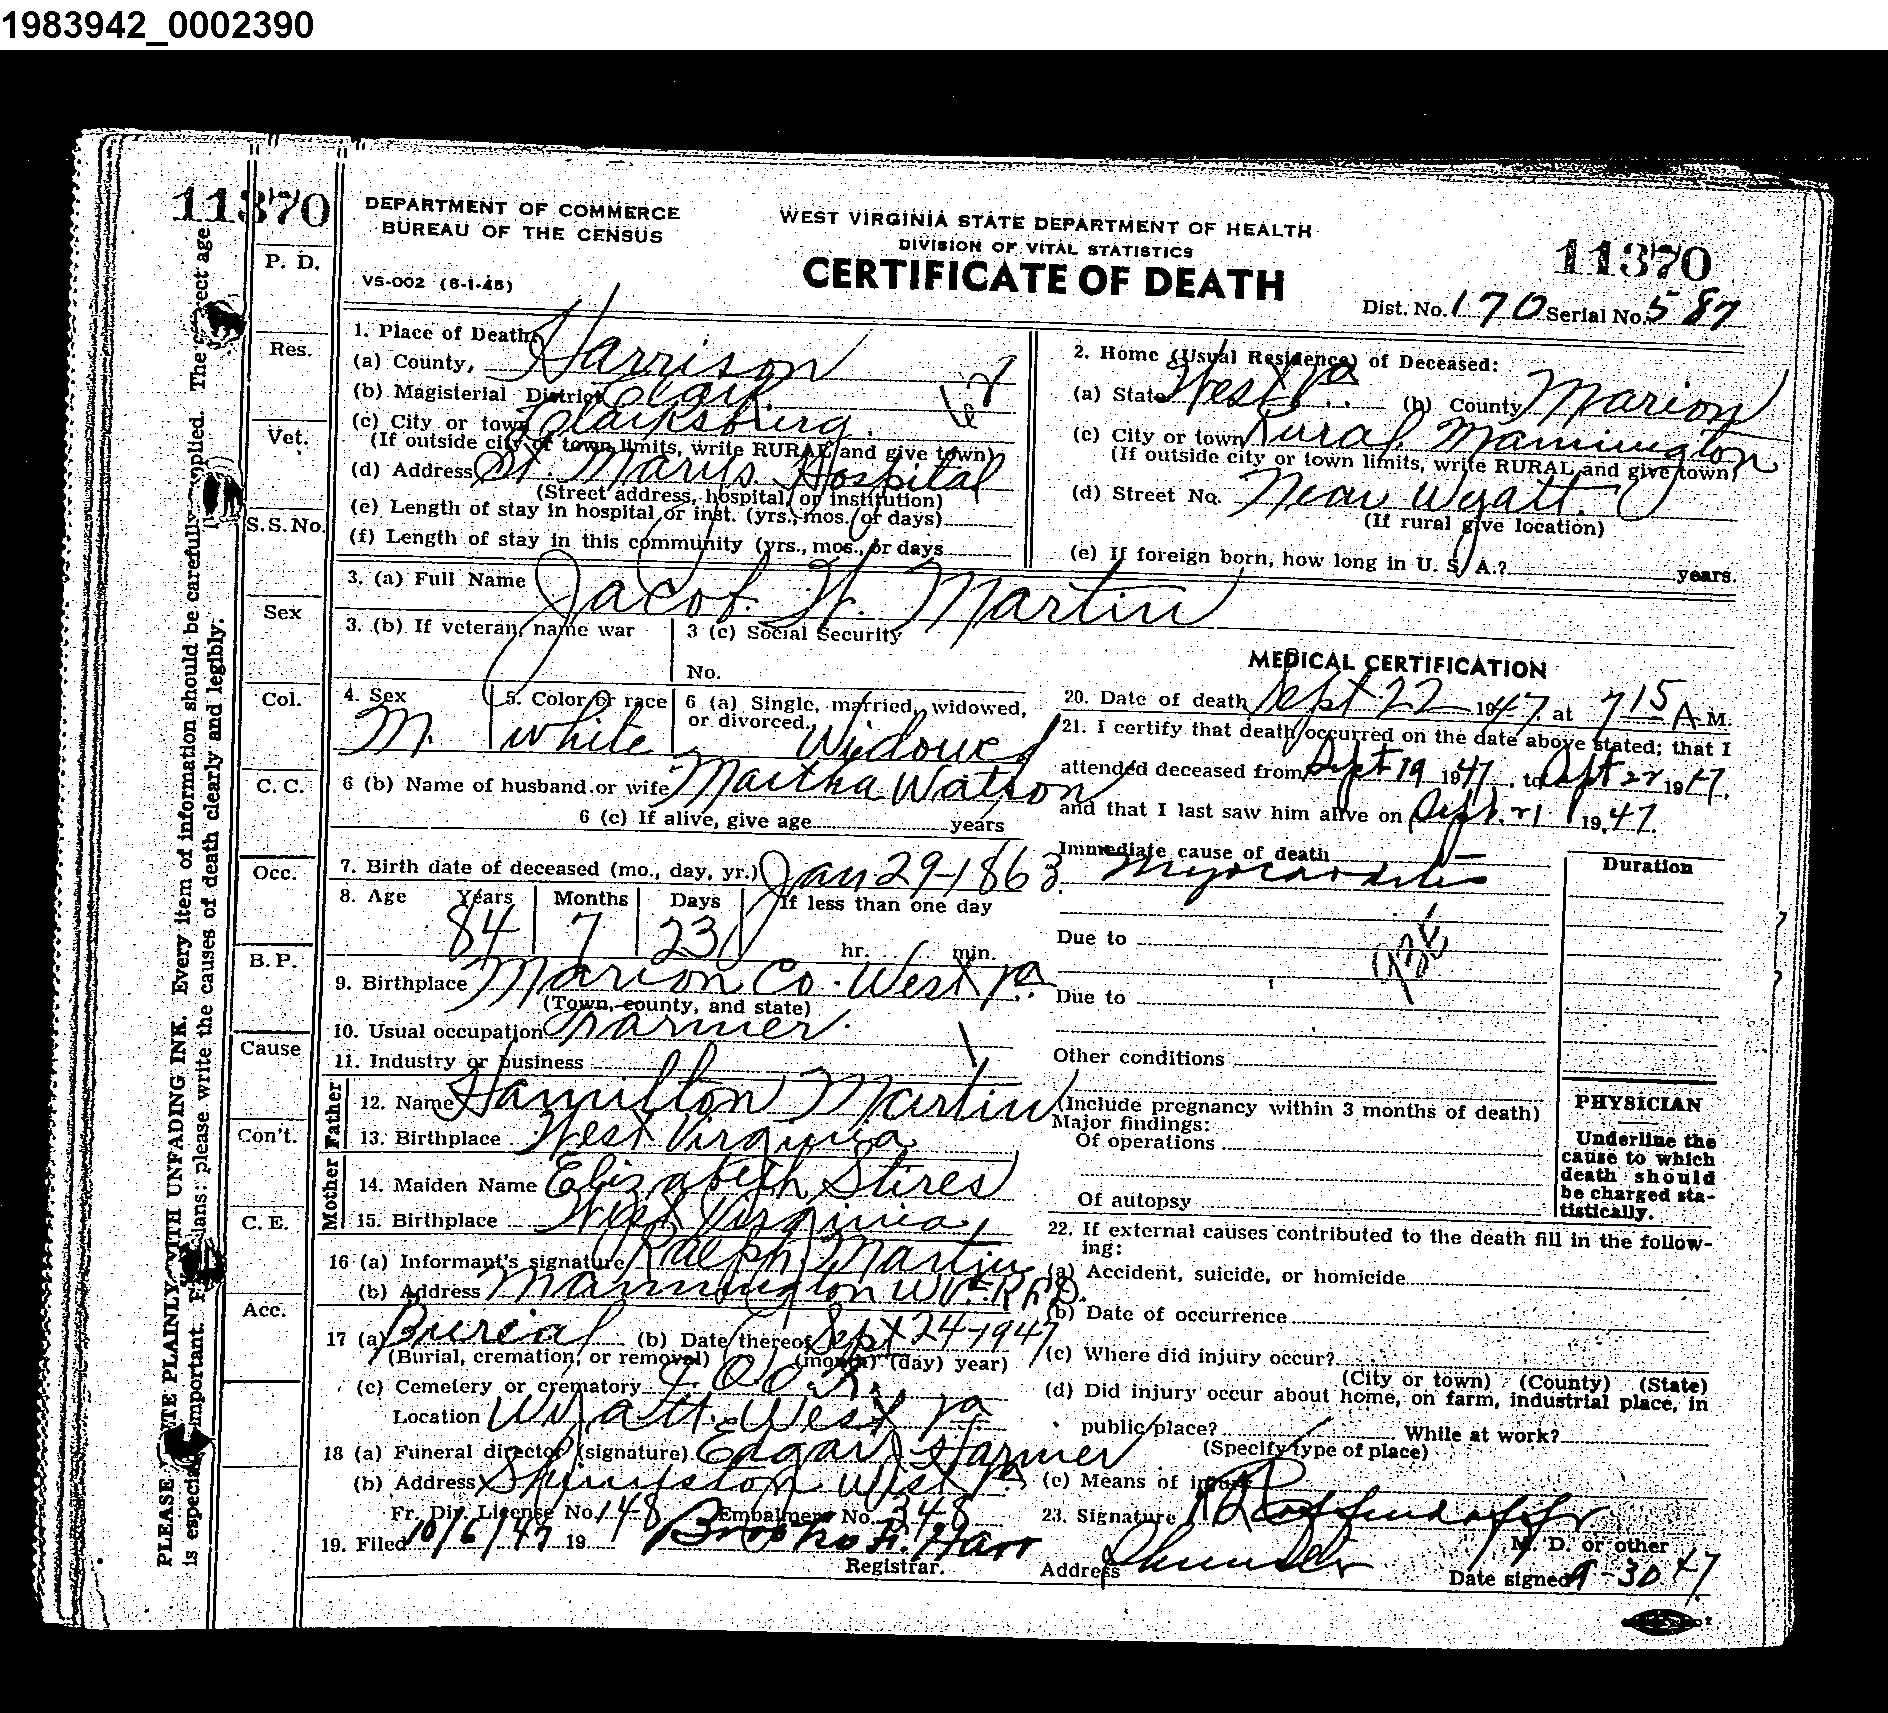 1983942_0002390
11370
DEPARTMENT OF COMMERCE
BUREAU OF THE CENSUS
VS-002 (6-1-45)
WEST VIRGINIA STATE DEPARTMENT OF HEALTH
DIVISION OF VITAL STATISTICS
CERTIFICATE OF DEATH
11370
Dist. No. 170 Serial No. 587
PLEASE WRITE PLAINLY WITH UNFADING INK. Every item of information should be carefully supplied. The correct age
is especially important. Physicians: please write the causes of death clearly and legibly.
P. D.
Res.
Vet.
S.S.No.
Sex
Col.
C. C.
Occ.
B. P.
Cause
Con't.
C. E.
Acc.
1. Place of Death:
(a) County, Harrison
(b) Magisterial District Clark
(c) City or town Clarksburg
(If outside city or town limits, write RURAL and give town)
(d) Address St. Marys Hospital
(Street address, hospital, or institution)
(e) Length of stay in hospital or inst. (yrs., mos. or days)
(f) Length of stay in this community (yrs., mos., or days
2. Home (Usual Residence) of Deceased:
(a) State West Va. (b) County Marion
(c) City or town Rural Mannington
(If outside city or town limits, write RURAL and give town)
(d) Street No. Near Wyatt.
(If rural give location)
(e) If foreign born, how long in U. S. A.? years.
3. (a) Full Name Jacob W. Martin
3. (b) If veteran, name war
3 (c) Social Security
No.
4. Sex M. 5. Color or race white
6 (a) Single, married, widowed,
or divorced. Widowed
6 (b) Name of husband or wife Martha Watson
6 (c) If alive, give age years
7. Birth date of deceased (mo., day, yr.) Jan 29-1863
8. Age Years Months Days If less than one day
84 7 23 hr. min.
9. Birthplace Marion Co. West Va.
(Town, county, and state)
10. Usual occupation Farmer.
11. Industry or business
Father
12. Name Hamilton Martin
13. Birthplace West Virginia
Mother
14. Maiden Name Elizabeth Stires
15. Birthplace West Virginia
16 (a) Informant's signature Ralph Martin
(b) Address Mannington W Va. R.F.D.
17 (a) Burial (b) Date thereof Sept 24-1947
(Burial, cremation, or removal) (month) (day) year)
(c) Cemetery or crematory I.O.O.F.
Location Wyatt. West Va
18 (a) Funeral director (signature) Edgar Harmer
(b) Address Shinnston West Va
Fr. Dir. License No. 148 Embalmers No. 348
19. Filed 10/6/47 19 Brooks H. Harr
Registrar.
MEDICAL CERTIFICATION
20. Date of death Sept. 22 1947. at 7 15 A M.
21. I certify that death occurred on the date above stated; that I
attended deceased from Sept 19 1947, to Sept 22 1947,
and that I last saw him alive on Sept. 21 1947.
Immediate cause of death
Myocarditis
Duration
Due to
Due to
Other conditions
(Include pregnancy within 3 months of death)
Major findings:
Of operations
Of autopsy
PHYSICIAN
Underline the
cause to which
death should
be charged sta-
tistically.
22. If external causes contributed to the death fill in the follow-
ing:
(a) Accident, suicide, or homicide
(b) Date of occurrence
(c) Where did injury occur?
(City or town) (County) (State)
(d) Did injury occur about home, on farm, industrial place, in
public place? While at work?
(Specify type of place)
(e) Means of injury
23. Signature
M. D. or other
Address Date signed 9-30 47